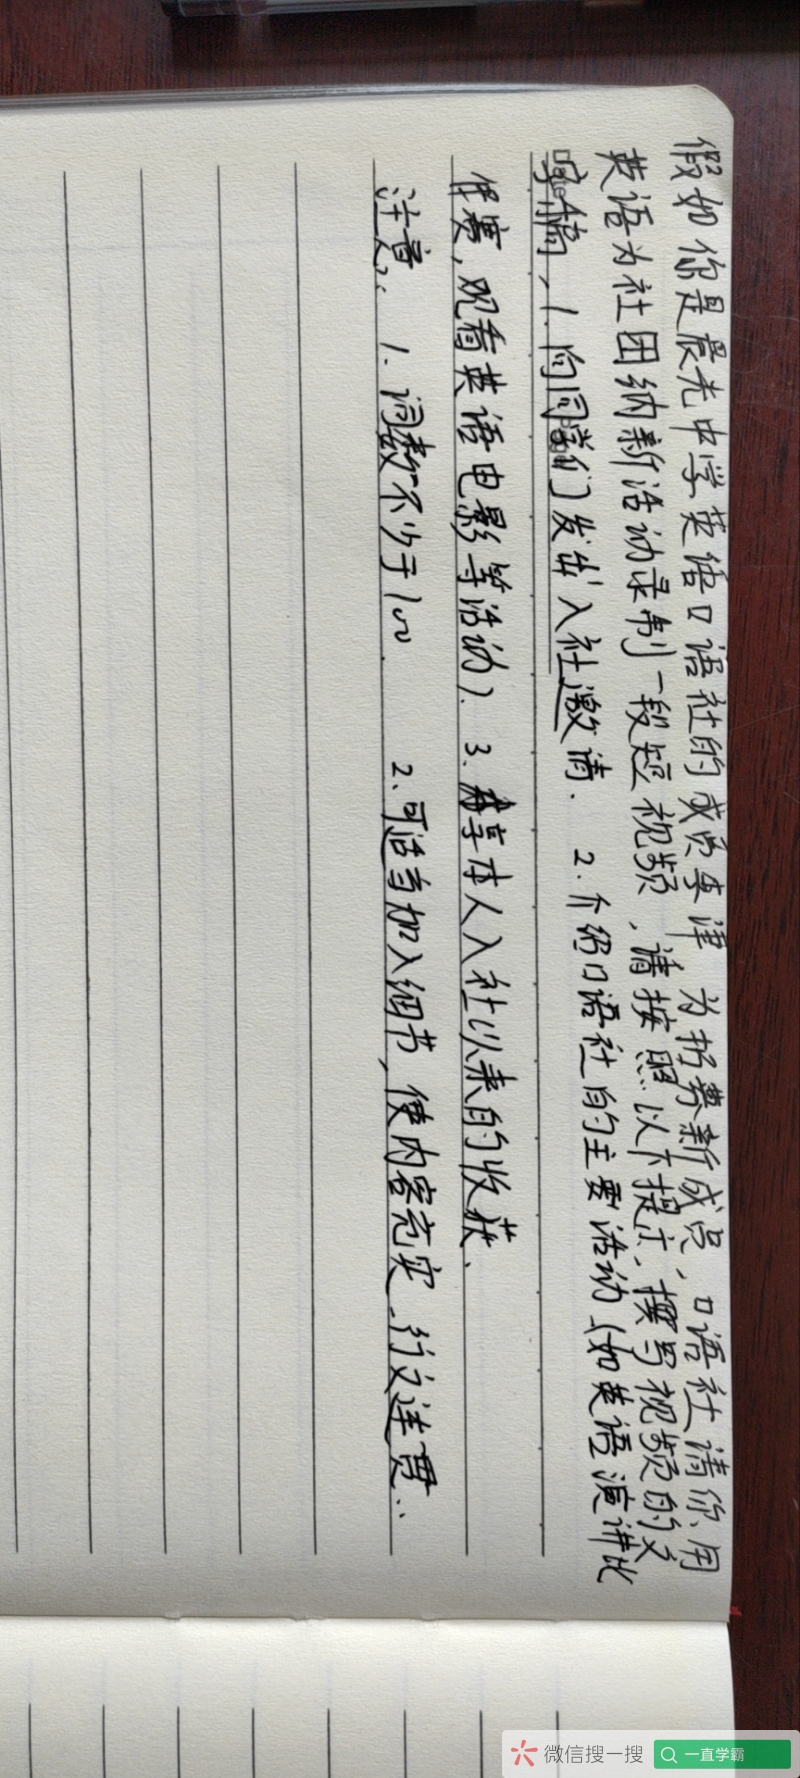 假如你是晨光中学英语口语社的成员李津,为招募新成员,口语社请你用
英语为社团纳新活动录制一段短视频,请按照以下提示,撰写视频的文
字稿,1.向同学们发出入社邀请. 2.介绍口语社的主要活动(如英语演讲比
赛,观看英语电影等活动). 3.分享本人入社以来的收获.
注意: 1.词数不少于100 2.可适当加入细节,使内容充实,行文连贯..
微信搜一搜 一直学霸